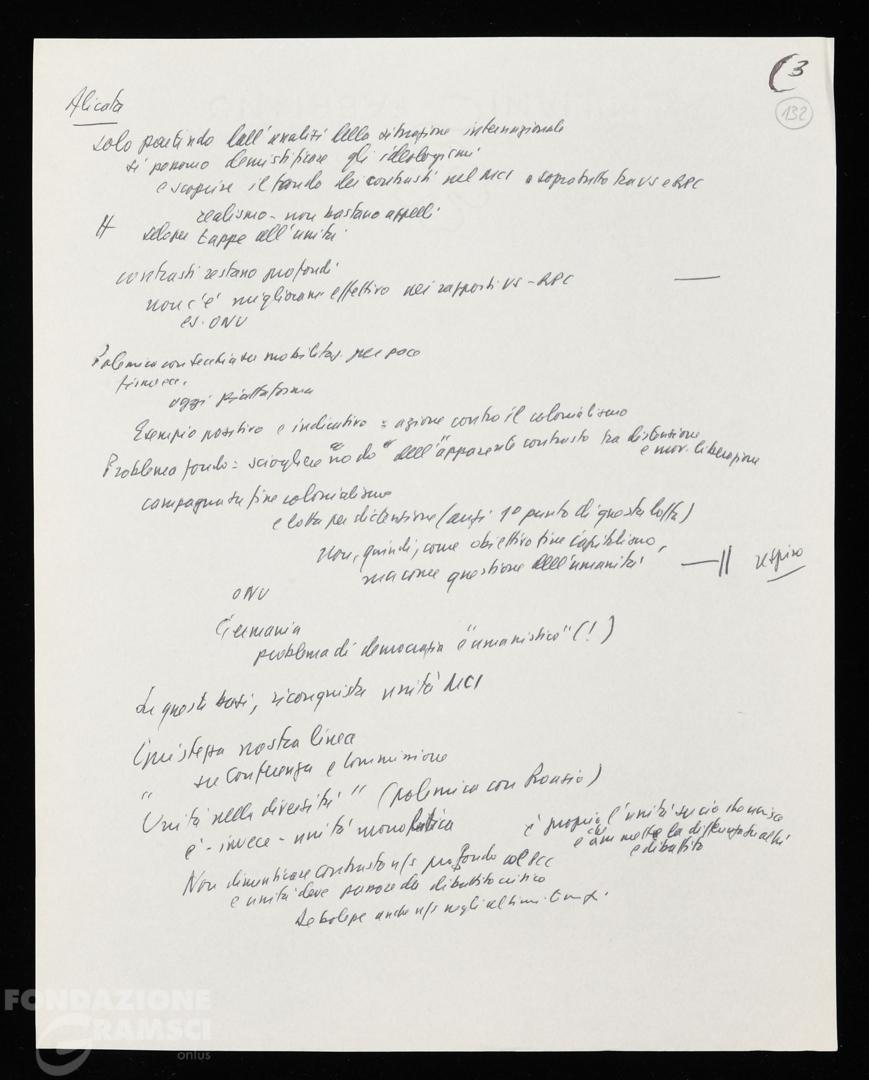 (3
132
Alicata
solo partendo dall'analisi della situazione internazionale
si possono demistificare gli ideologismi
e scoprire il fondo dei contrasti nel MCI e soprattutto tra US e RPC
realismo - non bastano appelli
tappe all'unità
contrasti restano profondi
non c'è miglioram. effettivo nei rapporti US - RPC
es. ONU
Polemica con Secchia su mobilitaz. per pace
oggi piattaforma
Esempio positivo e indicativo = azione contro il colonialismo
Problema fondo = sciogliere "nodo" dell'"apparente contrasto tra distensione
e mov. liberazione
campagna su fine colonialismo
e lotta per distensione (anzi 1° punto di questa lotta)
non, quindi, come obiettivo fine capitalismo,
ma come questione dell'umanità
respiro
ONU
Germania
problema di democrazia e "umanistico" (!)
Su queste basi, riconquista unità MCI
nostra linea
" su Conferenza e Commissione
Unità nella diversità" (polemica con)
è - invece - unità monolitica
è proprio l'unità su ciò che unisce
e ammette la differenza
e dibattito
Non dimenticare contrasto n/s profondo col PCC
e unità deve passare da dibattito critico
Debolezze anche n/s negli ultimi tempi.
FONDAZIONE
GRAMSCI
onlus